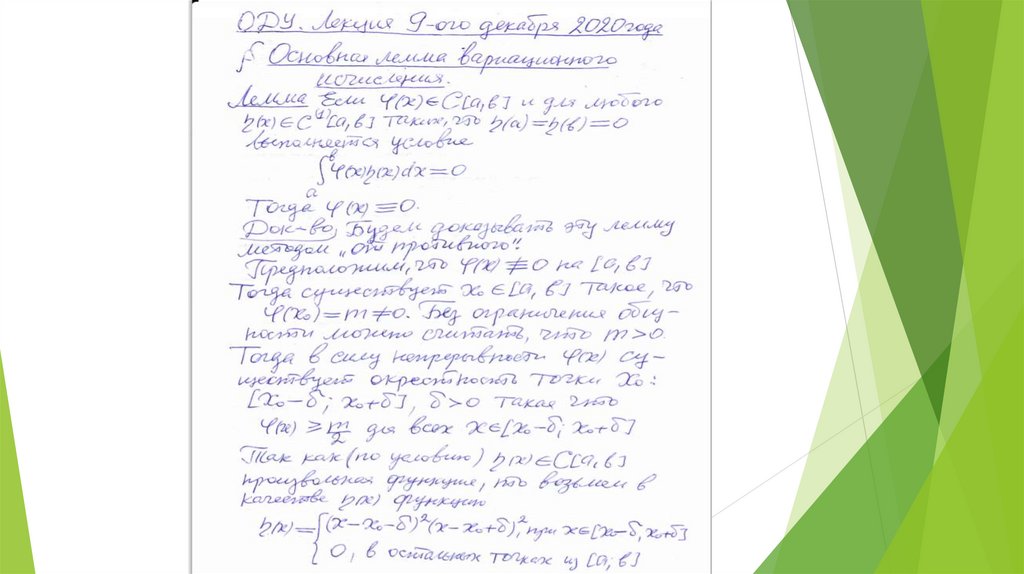 ОДУ. Лекция 9-ого декабря 2020 года
§ Основная лемма вариационного
исчисления.
Лемма Если φ(x)∈C[a,b] и для любого
η(x)∈C⁽¹⁾[a,b] таких, что η(a)=η(b)=0
выполняется условие
∫ₐᵇ φ(x)η(x)dx=0
Тогда φ(x)≡0.
Док-во. Будем доказывать эту лемму
методом „от противного".
Предположим, что φ(x)≢0 на [a,b]
Тогда существует x₀∈[a,b] такое, что
φ(x₀)=m≠0. Без ограничения общ-
ности можно считать, что m>0.
Тогда в силу непрерывности φ(x) су-
ществует окрестность точки x₀:
[x₀-δ; x₀+δ], δ>0 такая что
φ(x)≥m/2 для всех x∈[x₀-δ; x₀+δ]
Так как (по условию) η(x)∈C[a,b]
произвольная функция, то возьмем в
качестве η(x) функцию
η(x)={(x-x₀-δ)²(x-x₀+δ)², при x∈[x₀-δ, x₀+δ]
0, в остальных точках из [a;b]